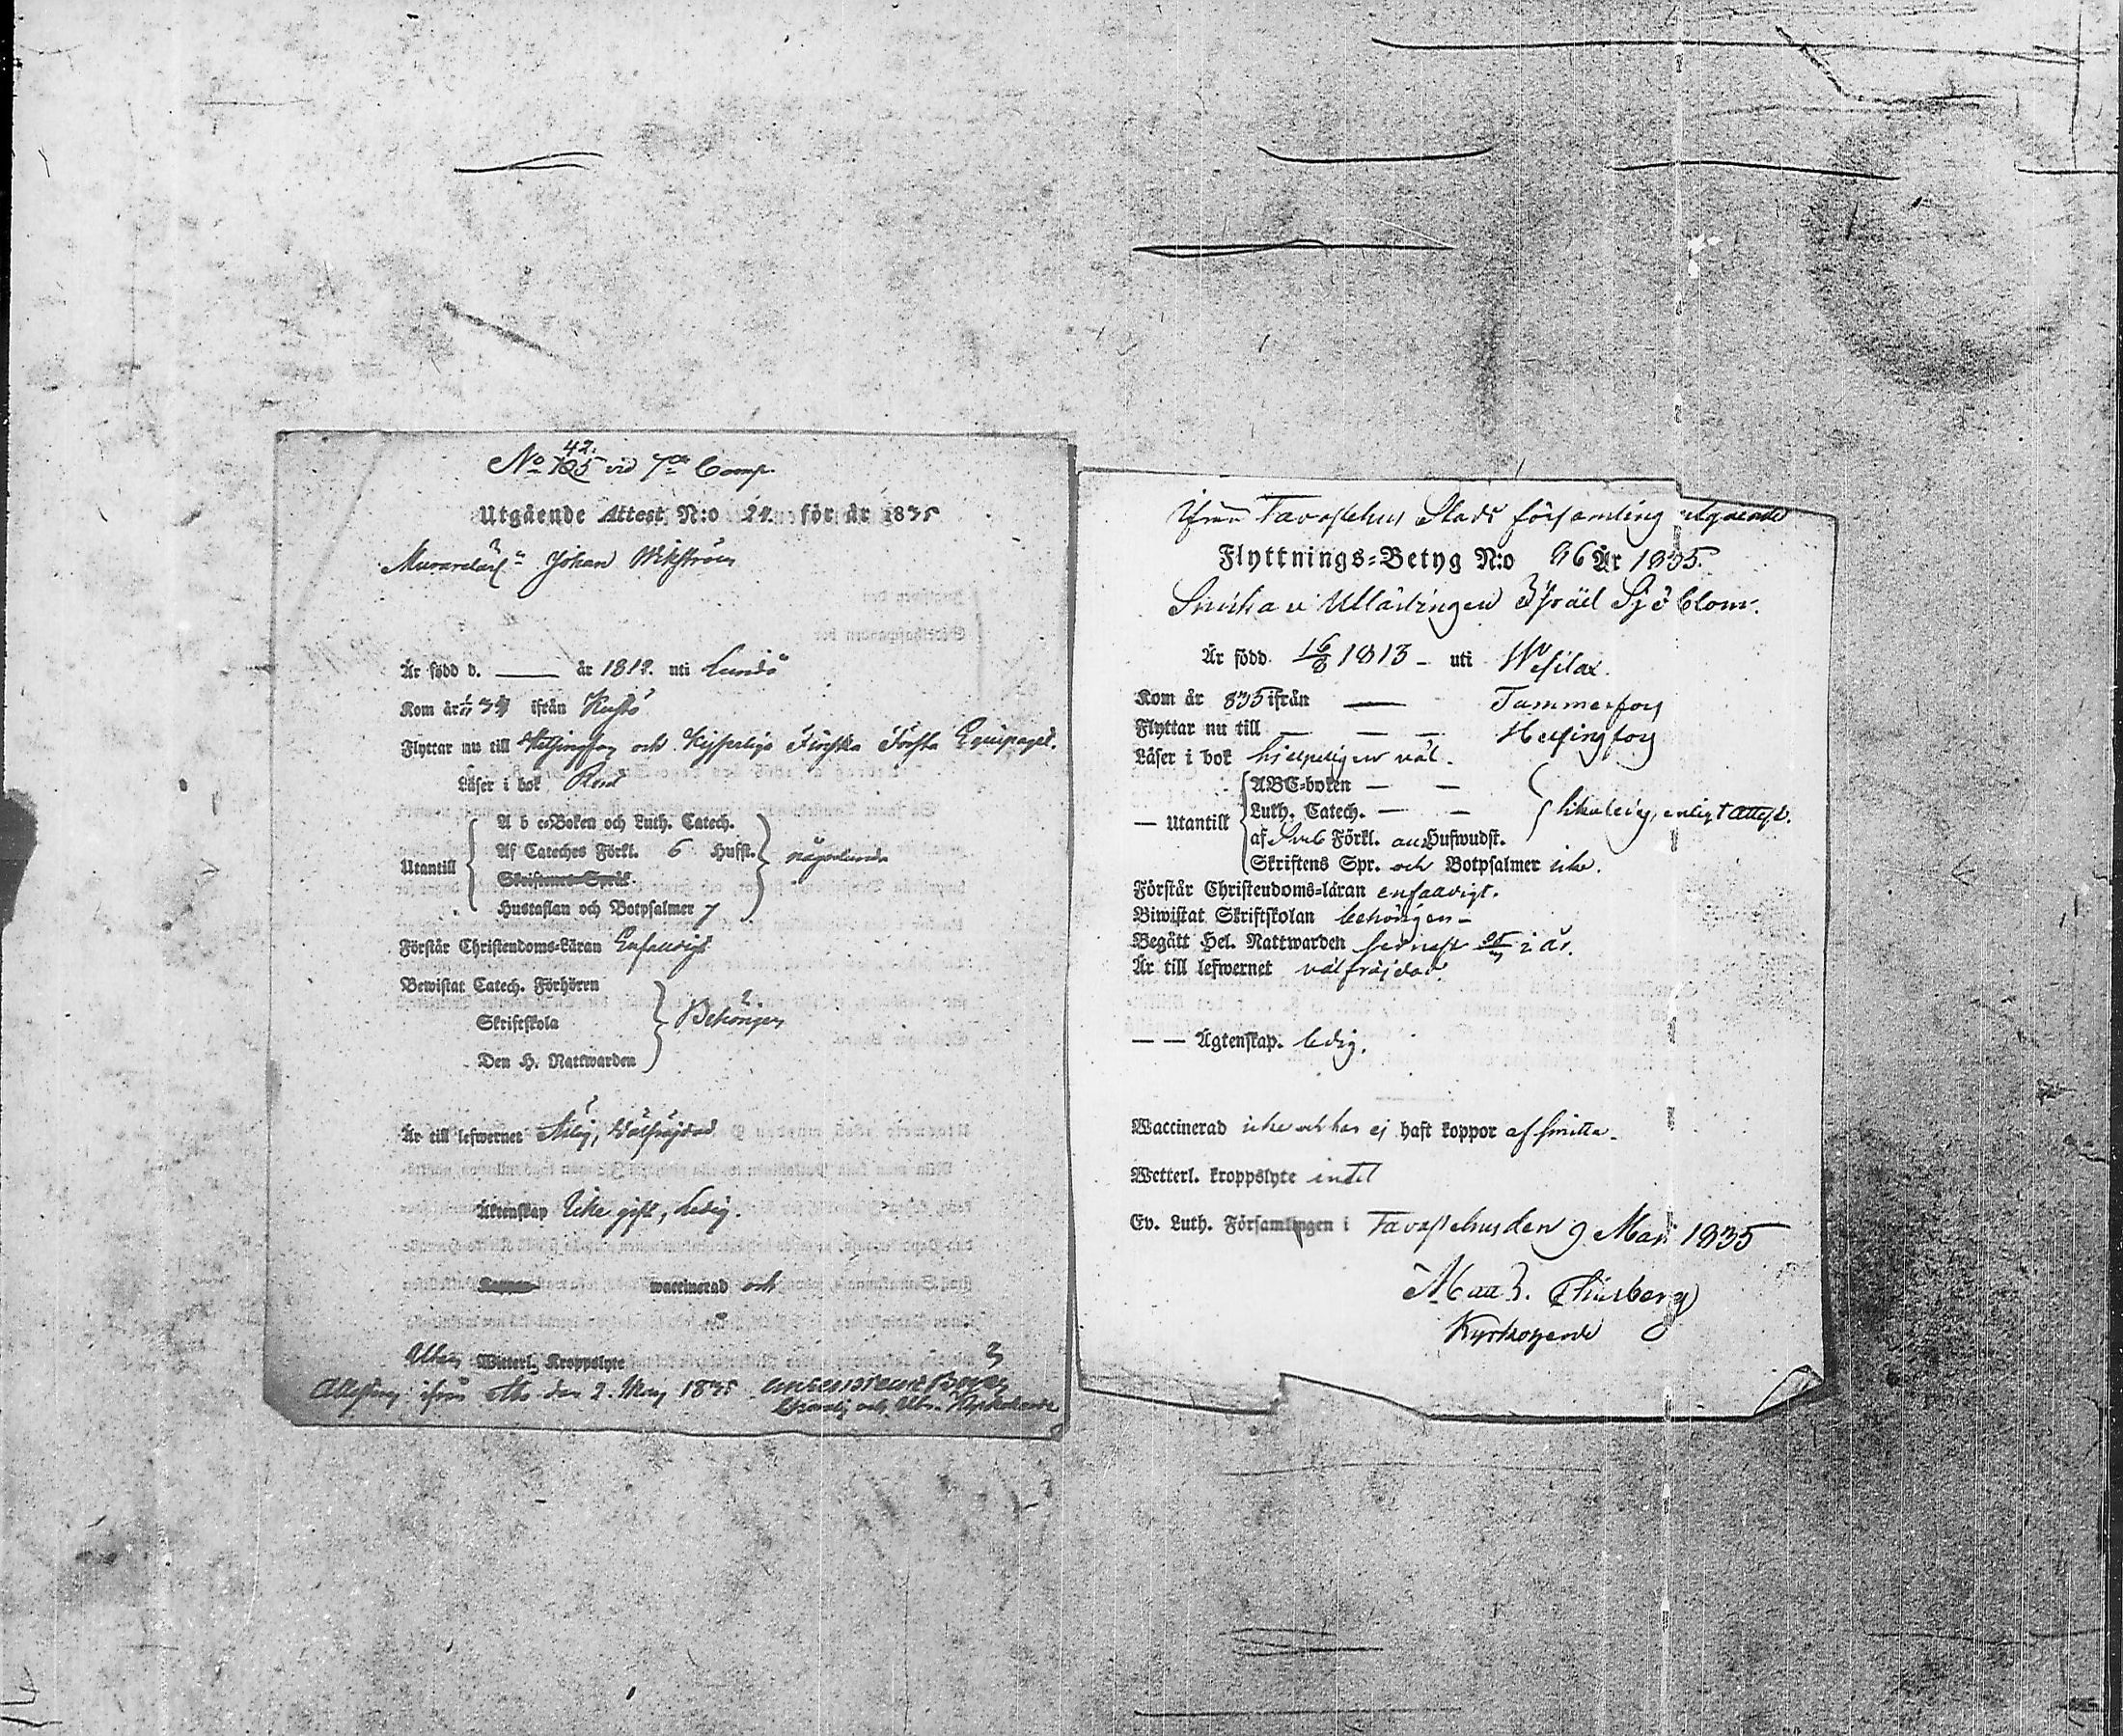 42.
No 125 vid 7de Comp.
Utgående Attest N:o 24. för år 1835
Johan Wikström
Är född d. — år 1812. uti Lundo
Kom år 34 ifrån Kustö
Flyttar nu till Helsingfors och Finska Första Equipaget.
Läser i bok Rent
Utantill
A b c=Boken och Luth. Catech.
Af Cateches Förkl. 6 Hufst.
Skriftenes Språk
Hustaflan och Botpsalmer 7
någorlunda
Förstår Christendoms=Läran Enfaldigt
Bewistat Catech. Förhören
Skriftskola
Den H. Nattwarden
Behörigen
Är till lefwernet Wälfräjdad
Äktenskap Icke gift, Ledig.
Koppor waccinerad och
Utan Witterl. Kroppslyte
ifrån Åbo den 2. Maj 1835
Ifrån Tavastehus Stads församling utgående
Flyttnings=Betyg N:o 96 År 1835.
Israel Sjöblom.
Är född 16/8 1813 - uti Wesilax.
Kom år 835 ifrån — Tammerfors
Flyttar nu till — — — Helsingfors
Läser i bok hjelpeligen väl.
— Utantill
ABC=boken — —
Luth. Catech. — —
af Sveb. Förkl. Hufwudst.
Skriftens Spr. och Botpsalmer icke.
likaledes, enligt Attest.
Förstår Christendoms=läran enfaldigt.
Biwistat Skriftskolan behörigen -
Begått Hel. Nattwarden senast i år.
Är till lefwernet välfräjdad
— — Ägtenskap. ledig.
Waccinerad icke och har ej haft koppor af smitta.
Wetterl. kroppslyte intet
Ev. Luth. Församlingen i Tavastehus den 9 Maji 1835
Kyrkoherde